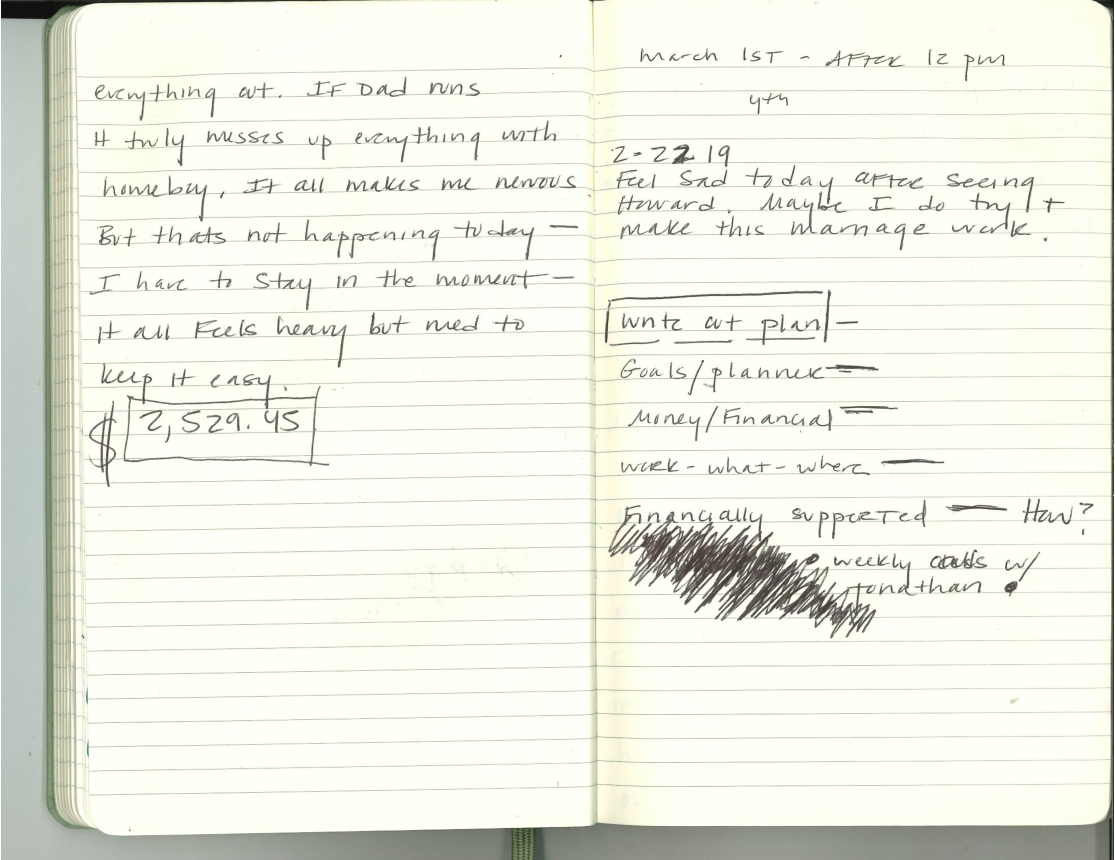 everything out. IF Dad runs
It truly messes up everything with
homeboy, It all makes me nervous
But thats not happening today —
I have to stay in the moment —
It all Feels heavy but need to
keep it easy.
$ 2,529.45
March 1ST - AFTER 12 pm
4th
2-22 19
Feel Sad today after seeing
Howard. Maybe I do try +
make this marriage work.
Write out plan —
Goals/planner —
Money/Financial —
work - what - where —
Financially supported — How?
• weekly calls w/
Jonathan •